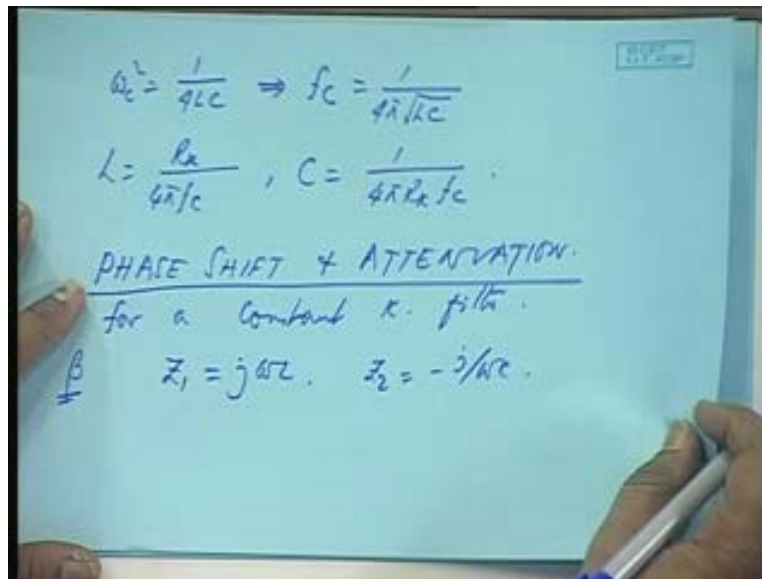 ω_c² = 1/4LC ⇒ f_c = 1/4π√LC
L = R_k/4πf_c , C = 1/4πR_k f_c .
PHASE SHIFT & ATTENUATION.
for a Constant K. filter.
β Z₁ = jωL. Z₂ = -j/ωc.